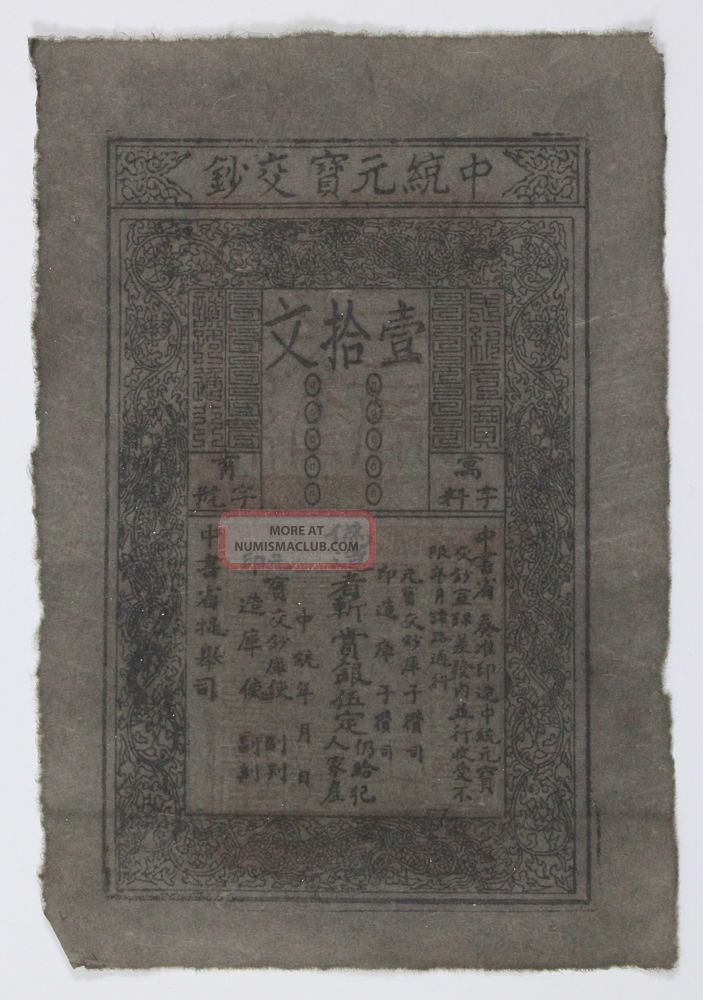 中統元寶交鈔
壹拾文
字料
字號
中書省奏准印造中統元寶
交鈔宣課差發內並行收受不
限年月諸路通行
元寶交鈔庫子攢司
印造庫子攢司
者斬賞銀伍定
仍給犯
人家產
中統年月日
元寶交鈔庫使副判
印造庫使副判
中書省提舉司
MORE AT
NUMISMACLUB.COM